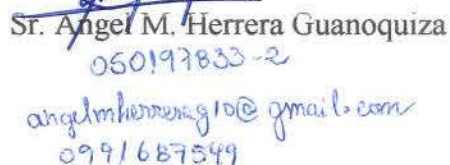 Sr. Angel M. Herrera Guanoquiza
050197833-2
angelmherrerag10@gmail.com
0991687549